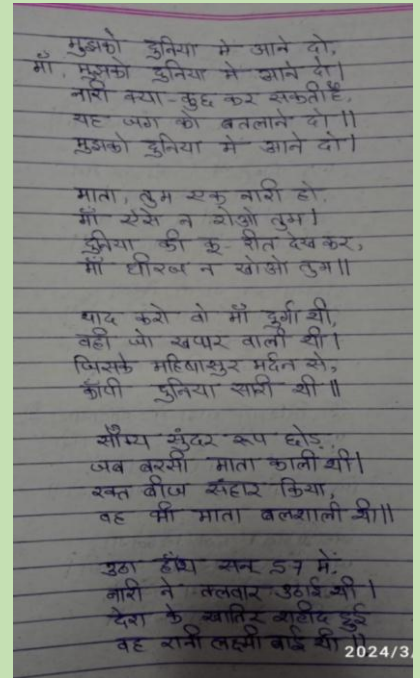 मुझको दुनिया मे आने दो,
माँ, मुझको दुनिया मे आने दो।
नारी क्या-कुछ कर सकती है,
यह जग को बतलाने दो॥
मुझको दुनिया मे आने दो।
माता, तुम एक नारी हो,
माँ ऐसे न रोओ तुम।
दुनिया की कू-रीत देख कर,
माँ धीरज न खोओ तुम॥
याद करो वो माँ दुर्गा थी,
वही जो खपार वाली थी।
जिसके महिषासुर मर्दन से,
काँपी दुनिया सारी थी॥
सौम्य सुंदर रूप छोड़,
जब बरसी माता काली थी।
रक्त बीज संहार किया,
वह भी माता बलशाली थी॥
उठा सन 57 में,
नारी ने तलवार उठाई थी।
देश के खातिर शहीद हुई
वह रानी लक्ष्मी बाई थी॥
2024/3/